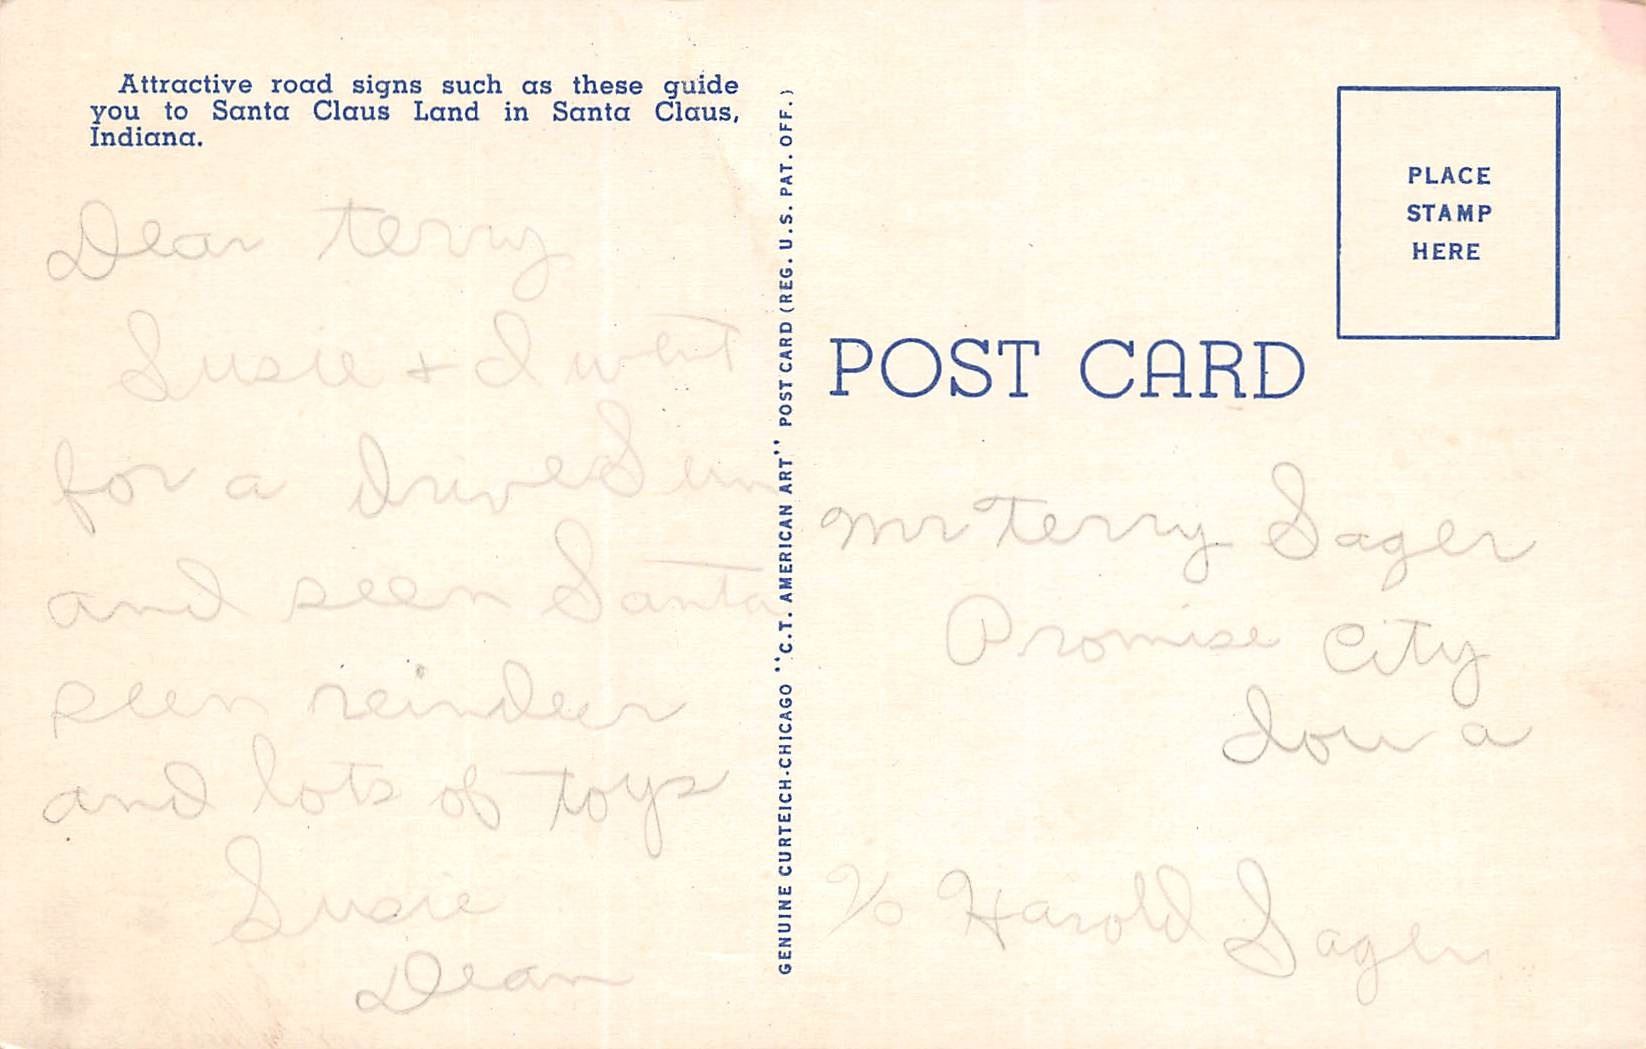 Attractive road signs such as these guide
you to Santa Claus Land in Santa Claus,
Indiana.
Dear Terry
Susie + I went
for a drive Sun
and seen Santa
seen reindeer
and lots of toys
Susie
Dean
GENUINE CURTEICH-CHICAGO "C.T. AMERICAN ART" POST CARD (REG. U.S. PAT. OFF.)
PLACE
STAMP
HERE
POST CARD
Mr Terry Sager
Promise City
Iowa
c/o Harold Sager